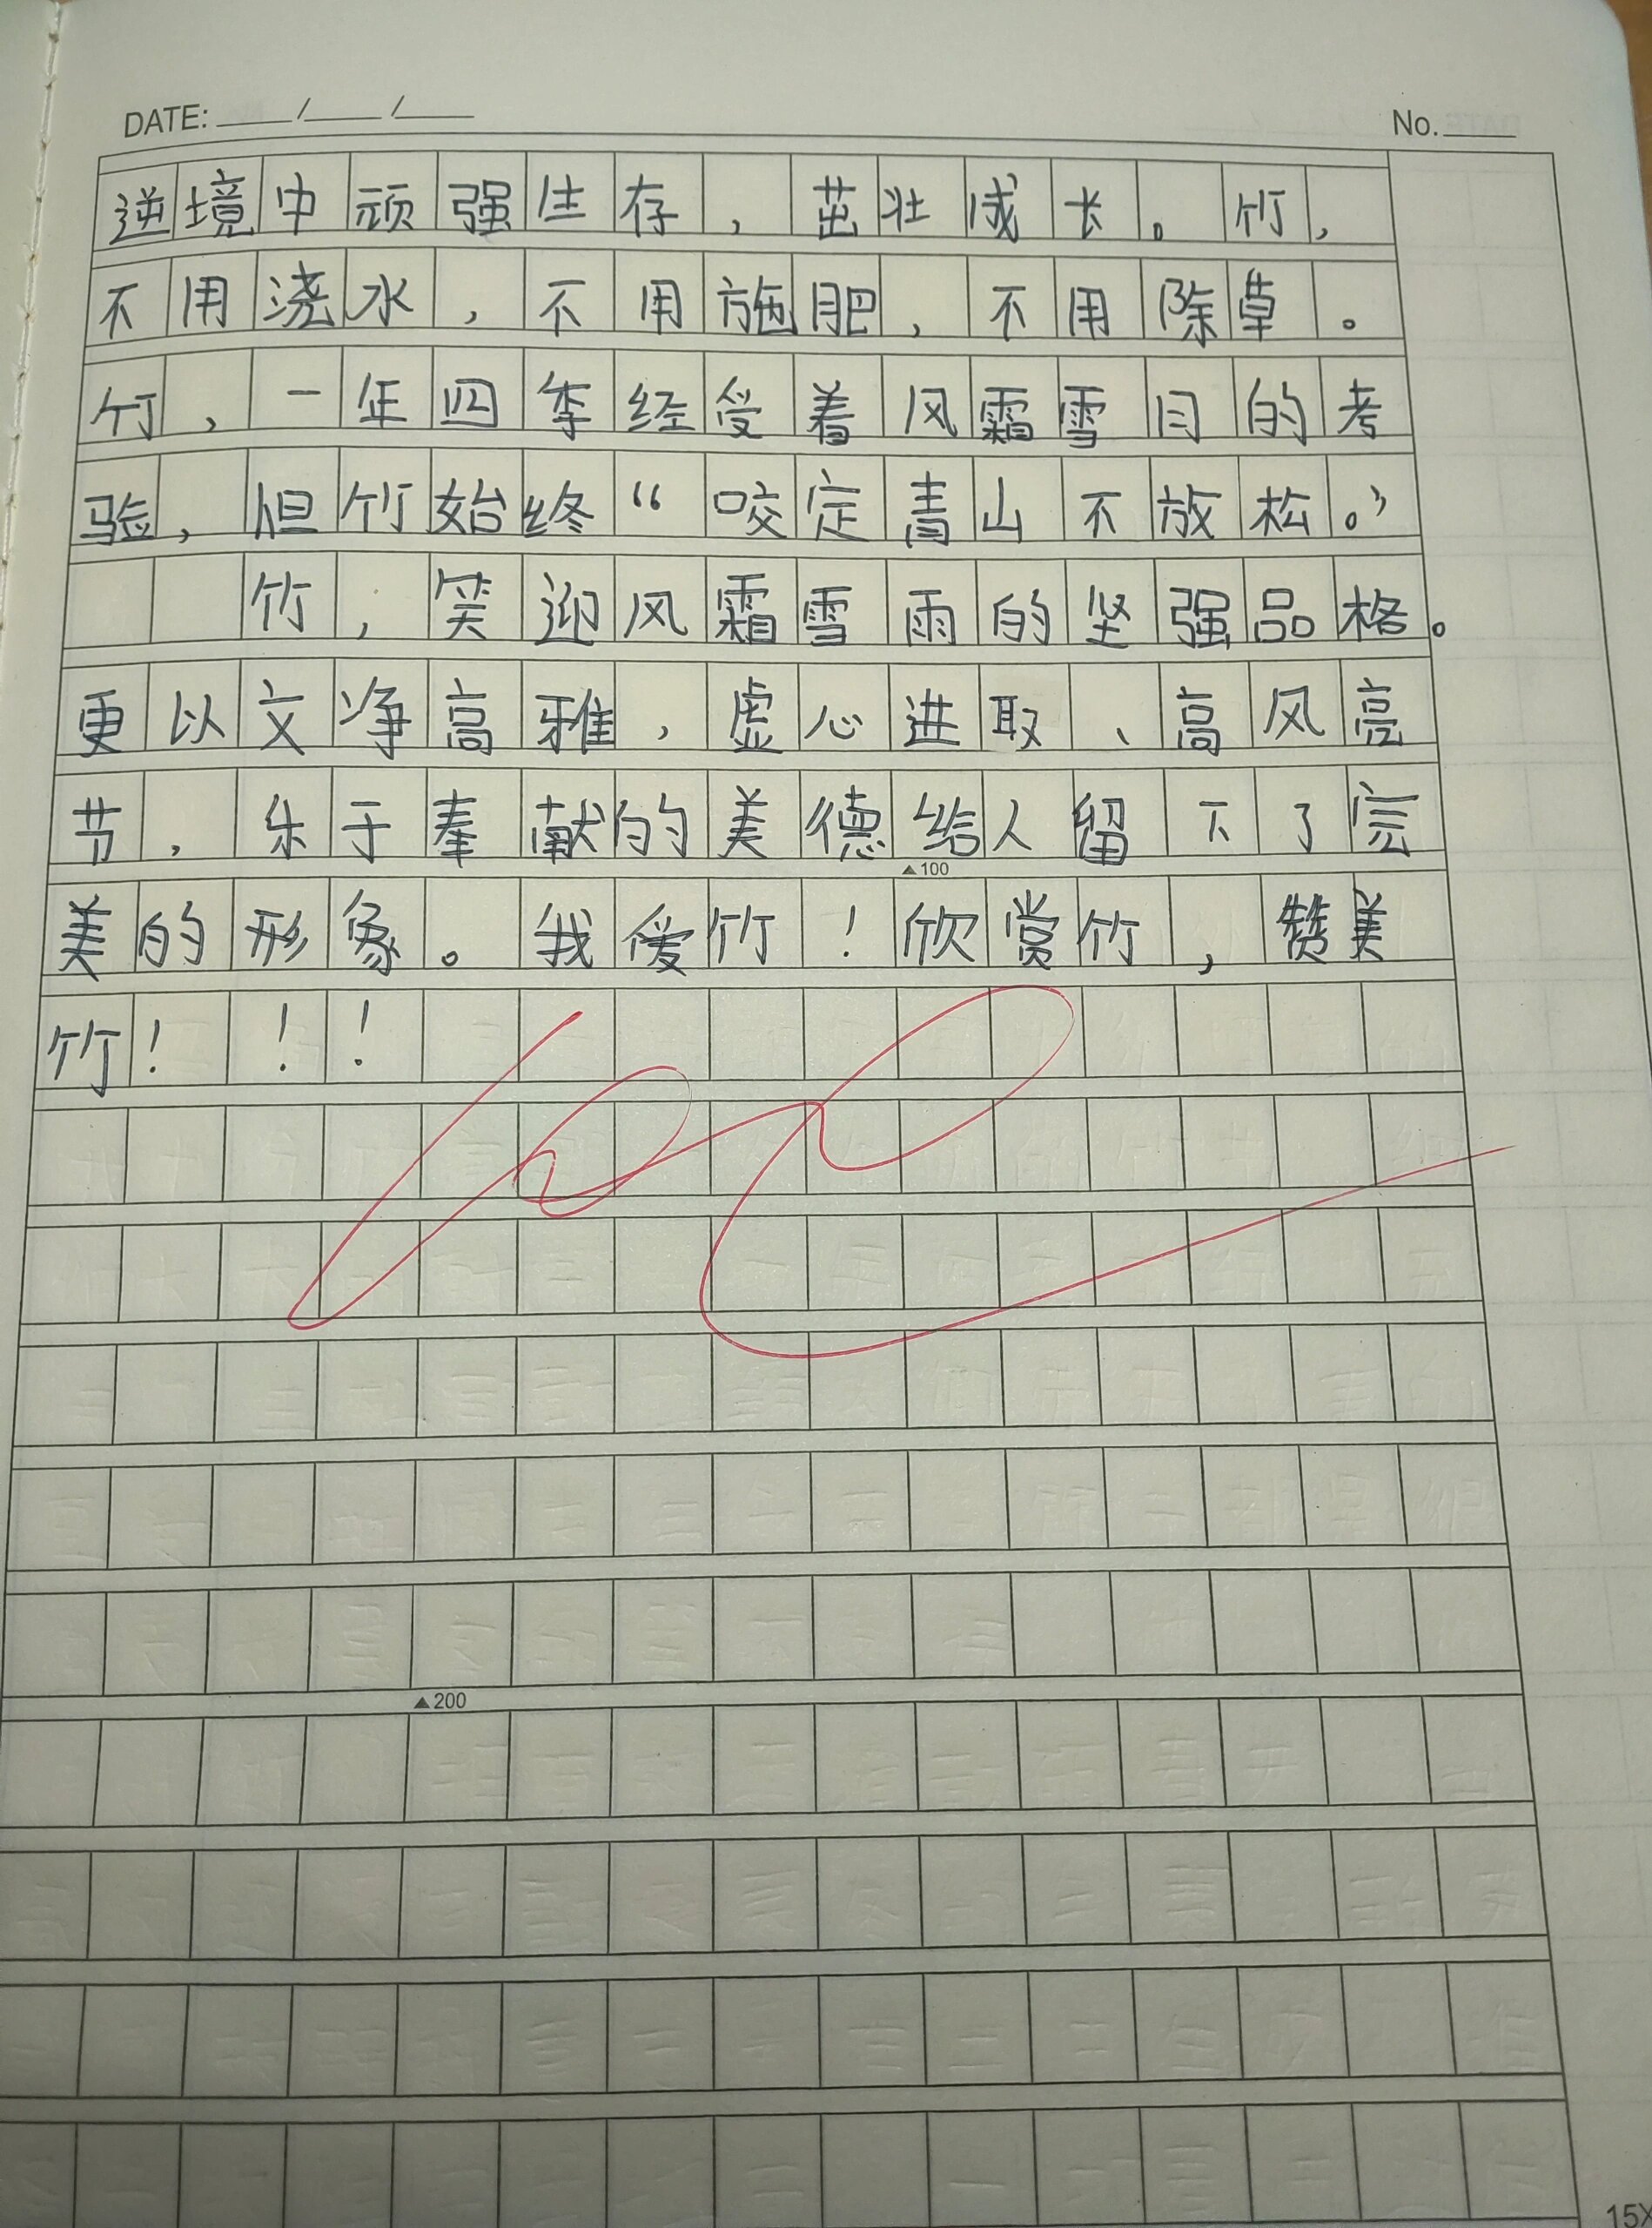 DATE: / / No.
逆境中顽强生存，茁壮成长。竹，
不用浇水，不用施肥，不用除草。
竹，一年四季经受着风霜雪目的考
验，但竹始终“咬定青山不放松。”
竹，笑迎风霜雪雨的坚强品格。
更以文净高雅，虚心进取、高风亮
节，乐于奉献的美德给人留下了完
▲100
美的形象。我爱竹！欣赏竹，赞美
竹！！！
100
▲200
15X